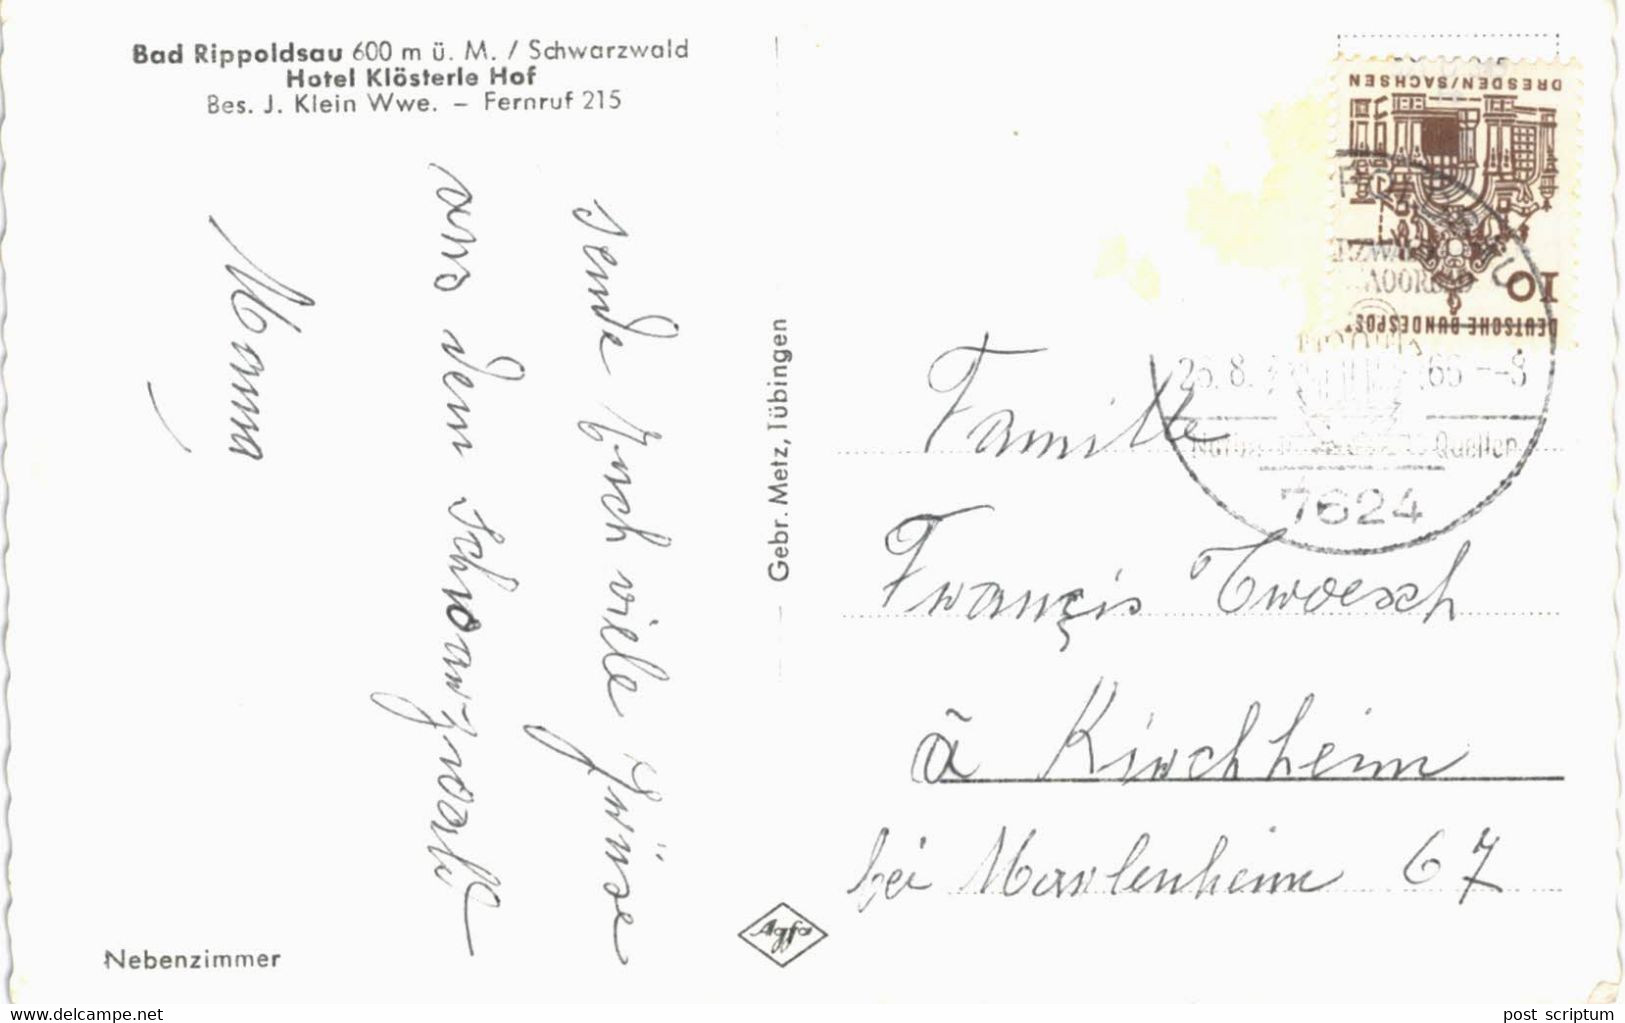 Bad Rippoldsau 600 m ü. M. / Schwarzwald
Hotel Klösterle Hof
Bes. J. Klein Wwe. – Fernruf 215
sende Euch viele Grüsse
aus dem Schwarzwald
Mama
Nebenzimmer
Gebr. Metz, Tübingen
Agfa
DRESDEN/SACHSEN
10
DEUTSCHE BUNDESPOST
26.8. 66 -- 8
Quellen
7624
Familie
Françis
à Kirchheim
bei Marlenheim 67
www.delcampe.net
post scriptum